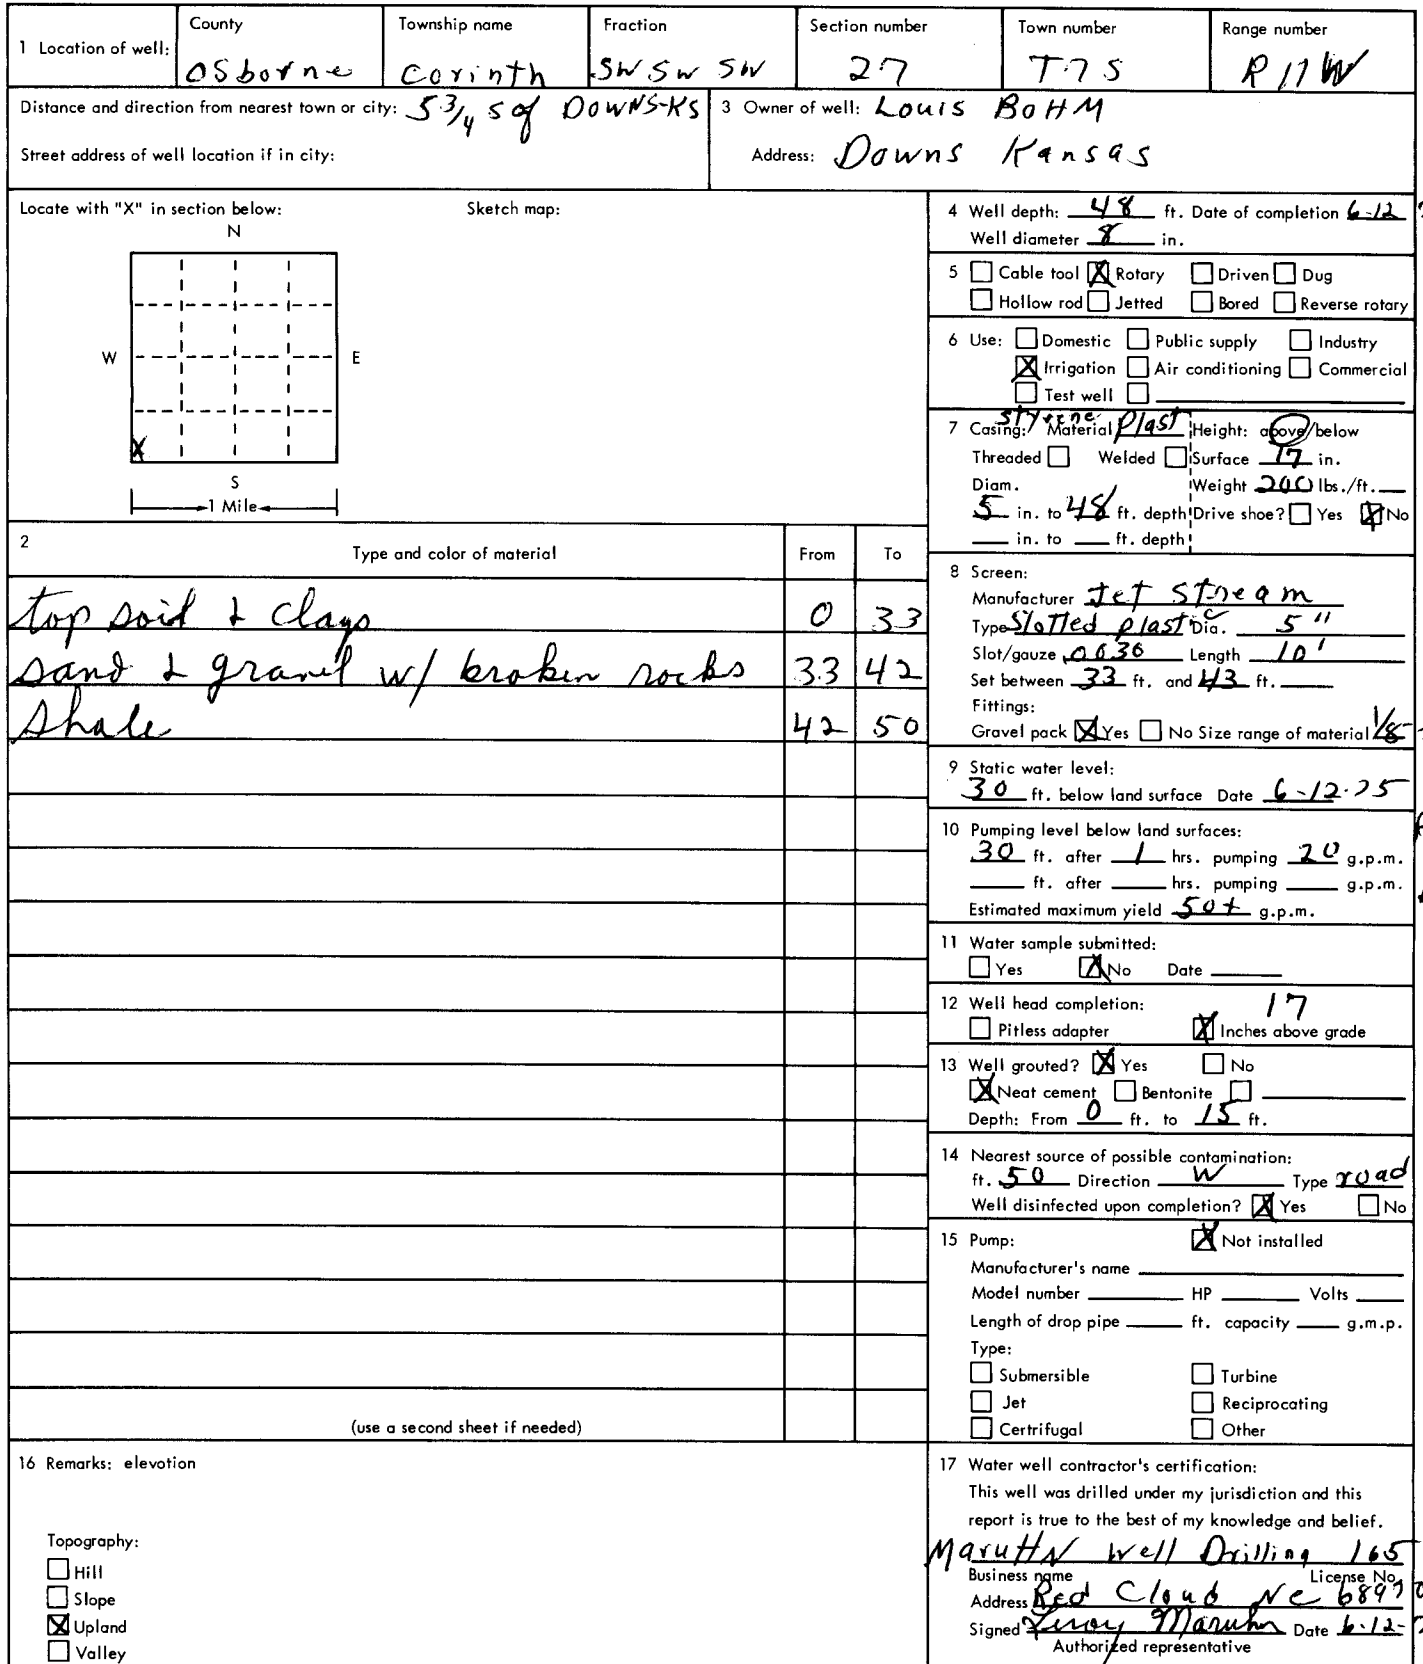 1 Location of well: County Township name Fraction Section number Town number Range number
Osborne Corinth SW SW SW 27 T7S R11W
Distance and direction from nearest town or city: 5 3/4 S of DOWNS-KS
Street address of well location if in city:
3 Owner of well: Louis BOHM
Address: Downs Kansas
Locate with "X" in section below: Sketch map:
N
W E
X
S
1 Mile
2 Type and color of material From To
top soil & clays 0 33
sand & gravel w/ broken rocks 33 42
Shale 42 50
(use a second sheet if needed)
16 Remarks: elevotion
Topography:
Hill
Slope
X Upland
Valley
4 Well depth: 48 ft. Date of completion 6-12
Well diameter 8 in.
5 Cable tool X Rotary Driven Dug
Hollow rod Jetted Bored Reverse rotary
6 Use: Domestic Public supply Industry
X Irrigation Air conditioning Commercial
Test well
7 Casing: styrene Material Plast Height: above/below
Threaded Welded Surface 17 in.
Diam. Weight 200 lbs./ft.
5 in. to 48 ft. depth Drive shoe? Yes X No
in. to ft. depth
8 Screen:
Manufacturer Jet Stream
Type Slotted plastic Dia. 5"
Slot/gauze .0030 Length 10'
Set between 33 ft. and 43 ft.
Fittings:
Gravel pack X Yes No Size range of material 1/8
9 Static water level:
30 ft. below land surface Date 6-12-75
10 Pumping level below land surfaces:
30 ft. after 1 hrs. pumping 20 g.p.m.
ft. after hrs. pumping g.p.m.
Estimated maximum yield 50+ g.p.m.
11 Water sample submitted:
Yes X No Date
12 Well head completion: 17
Pitless adapter X Inches above grade
13 Well grouted? X Yes No
X Neat cement Bentonite
Depth: From 0 ft. to 15 ft.
14 Nearest source of possible contamination:
ft. 50 Direction W Type road
Well disinfected upon completion? X Yes No
15 Pump: X Not installed
Manufacturer's name
Model number HP Volts
Length of drop pipe ft. capacity g.m.p.
Type:
Submersible Turbine
Jet Reciprocating
Certrifugal Other
17 Water well contractor's certification:
This well was drilled under my jurisdiction and this
report is true to the best of my knowledge and belief.
MaruHN Well Drilling 165
Business name License No.
Address Red Cloud Ne 68970
Signed Leroy Maruhn Date 6-12-
Authorized representative